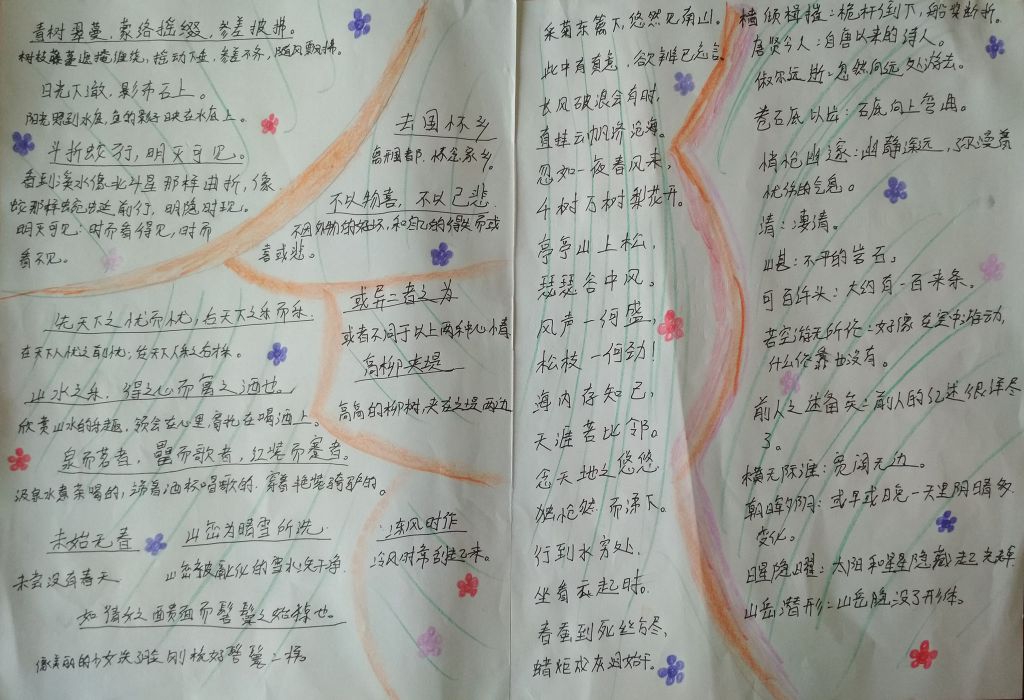 青树翠蔓,蒙络摇缀,参差披拂。
树枝藤蔓遮掩缠绕,摇动下垂,参差不齐,随风飘拂。
日光下澈,影布石上。
阳光照到水底,鱼的影子映在水底上。
斗折蛇行,明灭可见。
看到溪水像北斗星那样曲折,像
蛇那样蜿蜒前行,明隐时现。
明灭可见:时而看得见,时而
看不见。
去国怀乡
离开国都,怀念家乡。
不以物喜,不以己悲
不因外物的好坏,和自己的得失而或
喜或悲。
先天下之忧而忧,后天下之乐而乐.
在天下人忧之前忧,在天下人乐之后乐.
或异二者之为
或者不同于以上两种心情
山水之乐,得之心而寓之酒也。
欣赏山水的乐趣,领会在心里,寄托在喝酒上。
高柳夹堤
高高的柳树,夹在之堤两边
泉而茗者,罍而歌者,红装而蹇者。
汲泉水煮茶喝的,端着酒杯唱歌的.穿着艳装骑驴的。
未始无春
未尝没有春天
山峦为晴雪所洗
山峦被融化的雪水洗干净.
冻风时作
冷风时常刮起来。
如倩女之靧面而髻鬟之始掠也。
像美丽的少女洗了脸刚梳好髻鬟一样
采菊东篱下,悠然见南山。
此中有真意,欲辨已忘言。
长风破浪会有时,
直挂云帆济沧海。
忽如一夜春风来,
千树万树梨花开。
亭亭山上松,
瑟瑟谷中风。
风声一何盛,
松枝一何劲!
海内存知己,
天涯若比邻。
念天地之悠悠
独怆然而涕下。
行到水穷处.
坐看云起时.
春蚕到死丝方尽,
蜡炬成灰泪始干。
樯倾楫摧:桅杆倒下,船桨断折。
唐贤今人:自唐以来的诗人。
俶尔远逝:忽然向远处游去。
卷石底以出:石底向上弯曲。
悄怆幽邃:幽静深远,弥漫着
忧伤的气息。
清:凄清。
嵁:不平的岩石。
可百许头:大约有一百来条。
若空游无所依:好像在空中游动,
什么依靠也没有。
前人之述备矣:前人的记述很详尽
了。
横无际涯:宽阔无边。
朝晖夕阴:或早或晚一天里阴晴多
变化。
日星隐曜:太阳和星星隐藏起光辉.
山岳潜形:山岳隐没了形体。